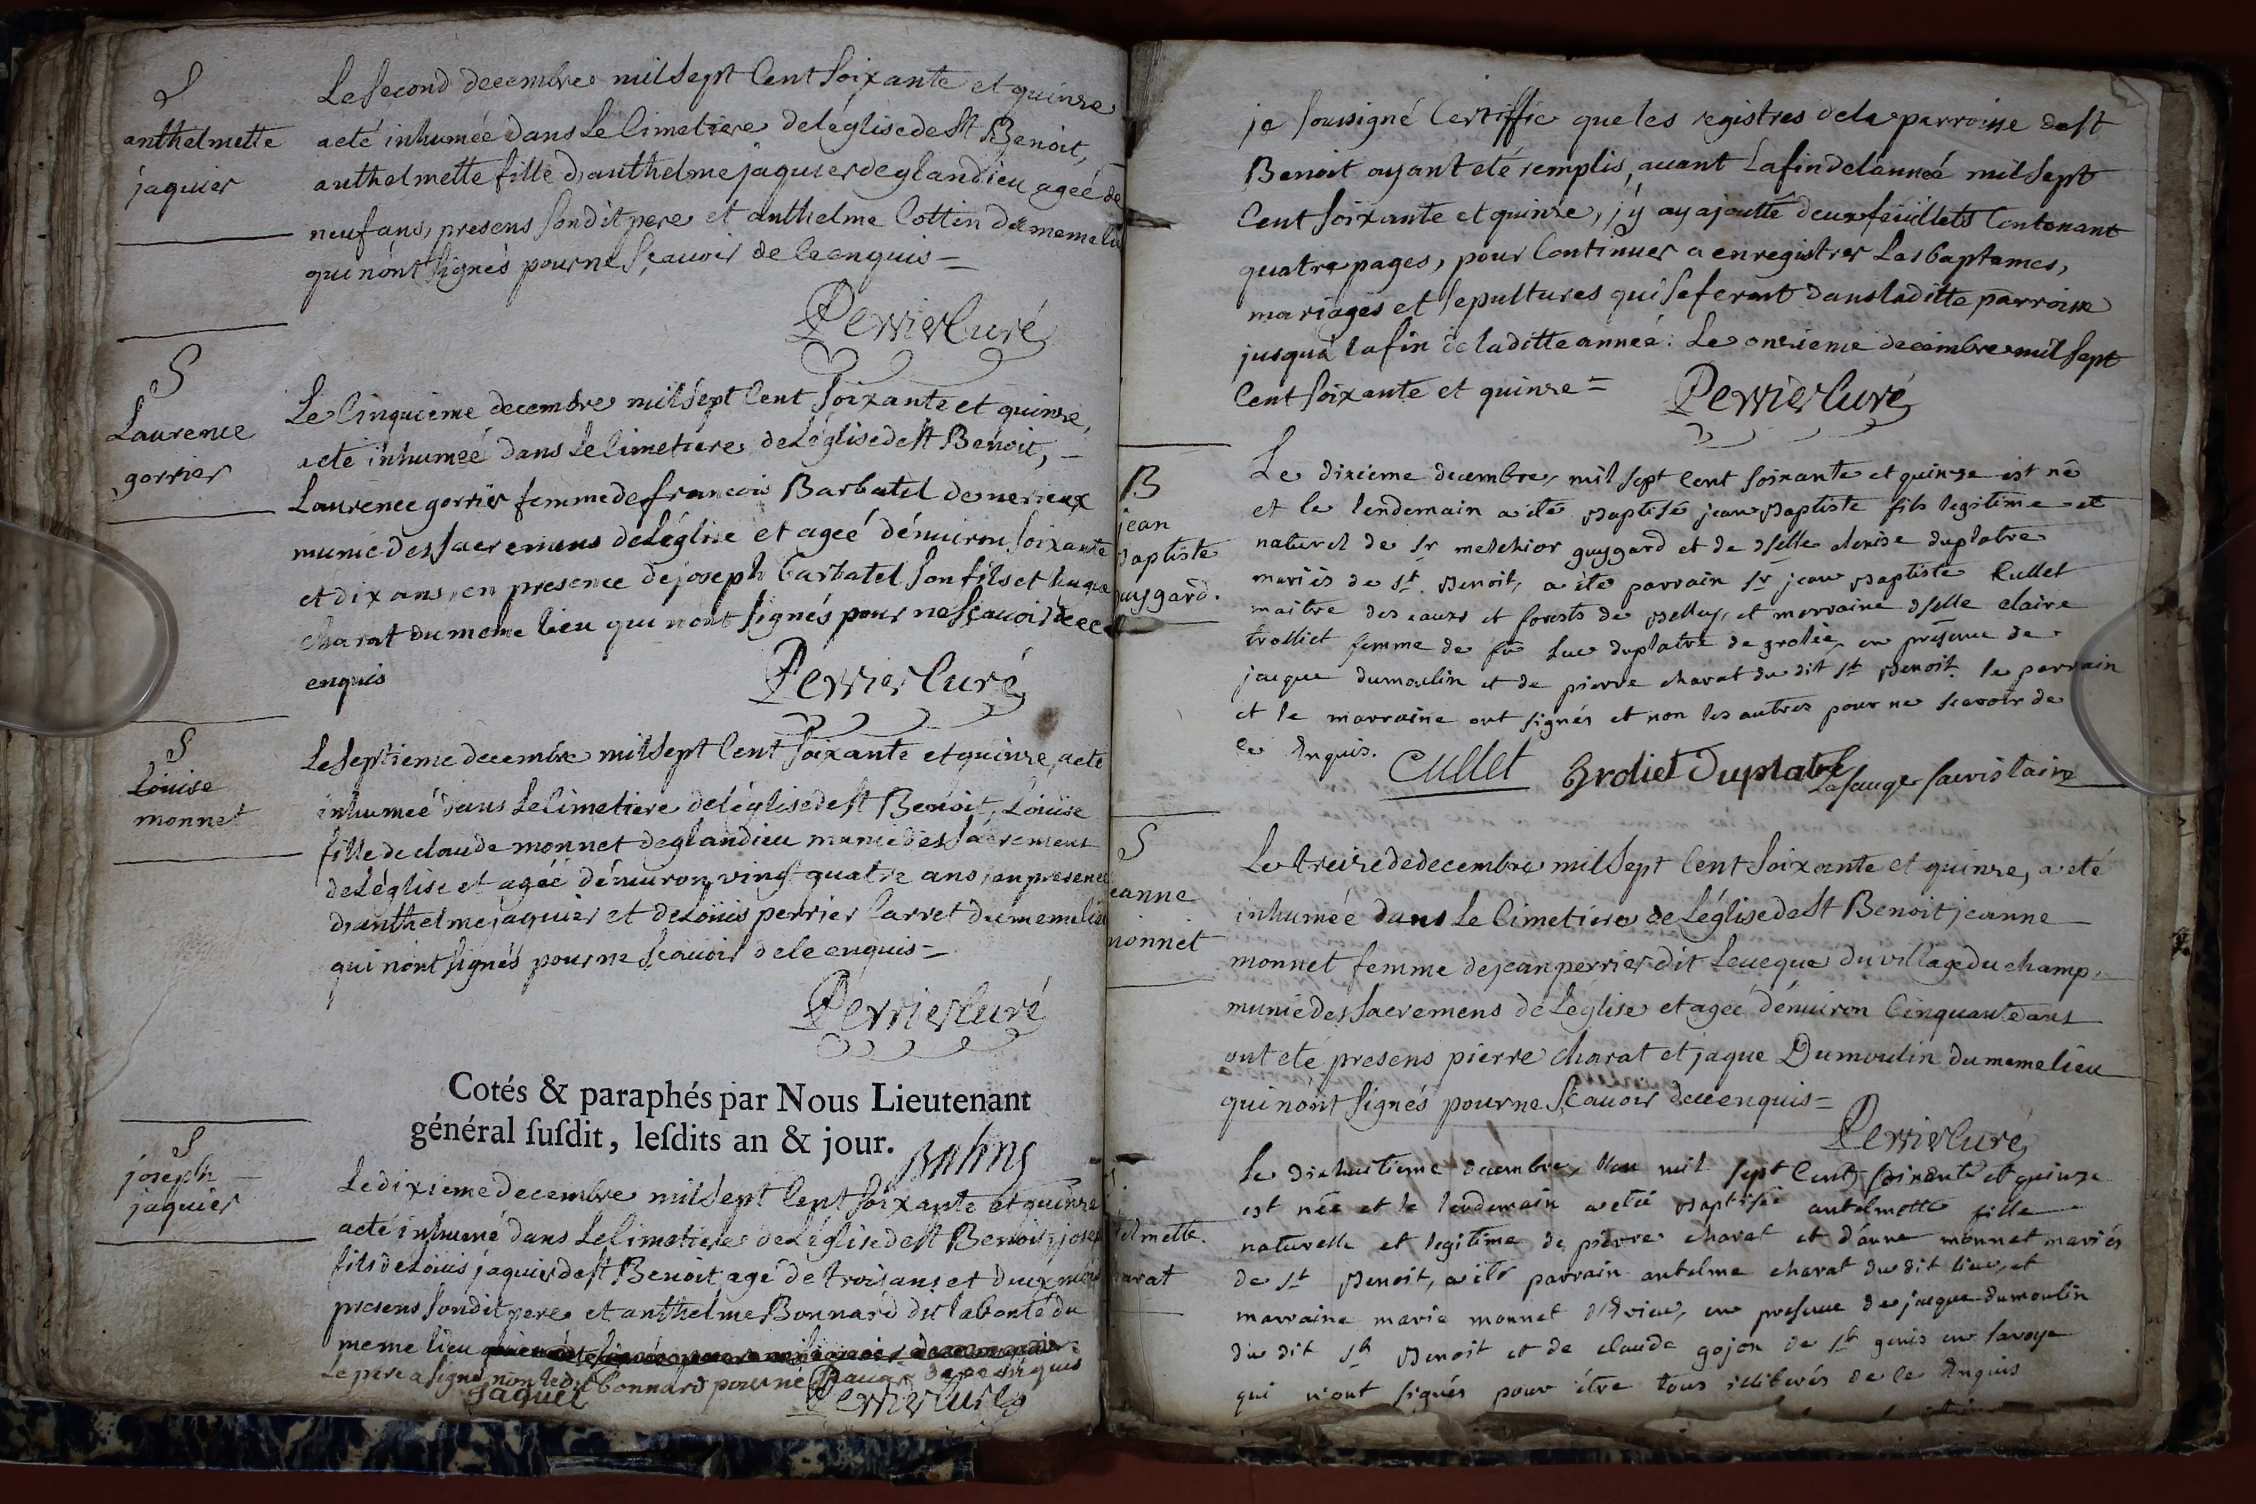 S
anthelmette
jaquier
Le second decembre mil sept Cent soixante et quinze
a eté inhumée dans le Cimetiere de léglise de st Benoit,
anthelmette fille d'anthelme jaquier de glandieu ageé de
neuf ans, presens son dit pere et anthelme Cottin du meme lieu
qui n'ont signés pour ne sçavoir de ce enquis =
Perrier Curé
S
Laurence
gorrier
Le Cinquieme decembre mil sept Cent soixante et quinze,
a eté inhumeé dans le Cimetiere de Léglise de st Benoit,
Laurence gorrier femme de francois Barbatel de verieux
munie des sacremens de Léglise et ageé dénuiron soixante
et dix ans, en presence de joseph barbatel son fils et hugue
charat du meme lieu qui n'ont signés pour ne sçauoir de ce
enquis
Perrier Curé
S
Loüise
monnet
Le septieme decembre mil sept Cent soixante et quinze, a eté
inhumeé dans Le Cimetiere de léglise de st Benoit, Loüise
fille de claude monnet de glandieu munie des sacremens
de Léglise et ageé dénuiron vingt quatre ans, en presence
d'anthelme jaquier et de Loüis perrier Carret du meme lieu
qui n'ont signés pour ne sçauoir de ce enquis =
Perrier Curé
Cotés & paraphés par Nous Lieutenant
général susdit, lesdits an & jour.
S
joseph
jaquier
Le dixieme decembre mil sept Cent soixante et quinze
a eté inhumé dans Le Cimetiere de Léglise de st Benoit, joseph
fils de Loüis jaquier de st Benoit agé de trois ans et deux mois
presens son dit pere et anthelme Bonnard dit labonté du
meme lieu
Le pere a signé non ledit bonnard pour ne sçauoir de ce enquis
jaquier
Perrier Curé
je soussigné Certiffie que les registres de la parroisse de st
Benoit ayant eté remplis, auant La fin de l'anneé mil sept
Cent soixante et quinze, j'y ay ajoutté deux feüillets Contenant
quatre pages, pour Continuer a enregistrer Les baptemes,
mariages et sepultures qui se feront dans laditte parroisse
jusqu'a la fin de laditte anneé. Le onzieme decembre mil sept
Cent soixante et quinze =
Perrier Curé
B
jean
Baptiste
guygard.
Le dixieme decembre, mil sept cent soixante et quinze est né
et le lendemain a eté Baptisé jean Baptiste fils legitime et
naturel de Sr melchior guygard et de dselle denise duplatre
mariés de st Benoit, a eté parrain Sr jean Baptiste Cullet
maitre des eaux et forests de Belley, et marraine dselle claire
trolliet femme de feu Luc duplatre de grolée, en présence de
jacque dumoulin et de pierre charat du dit st Benoit. le parrain
et le marraine ont signés et non les autres pour ne scavoir de
ce Enquis.
Cullet Troliet Duplatre
S
jeanne
monnet
Le treize de decembre mil sept Cent soixante et quinze, a eté
inhumée dans Le Cimetiere de Léglise de st Benoit jeanne
monnet femme de jean perrier dit Leueque du village du champ,
munie des sacremens de Léglise et ageé dénuiron Cinquante ans
ont eté presens pierre charat et jaque Dumoulin du meme lieu
qui n'ont signés pour ne sçauoir de ce enquis =
Perrier Curé
elmette.
arat
Le dixhuitieme decembre, L'an mil sept Cent soixante et quinze
est née et le lendemain a eté Baptisée antelmette fille
naturelle et legitime de pierre charat et d'anne monnet mariés
de st Benoit, a eté parrain antelme charat du dit lieu, et
marraine marie monnet en presence de jacque dumoulin
du dit st Benoit et de claude gojon de st genis en savoye
qui n'ont signés pour étre tous illiterés de ce Enquis